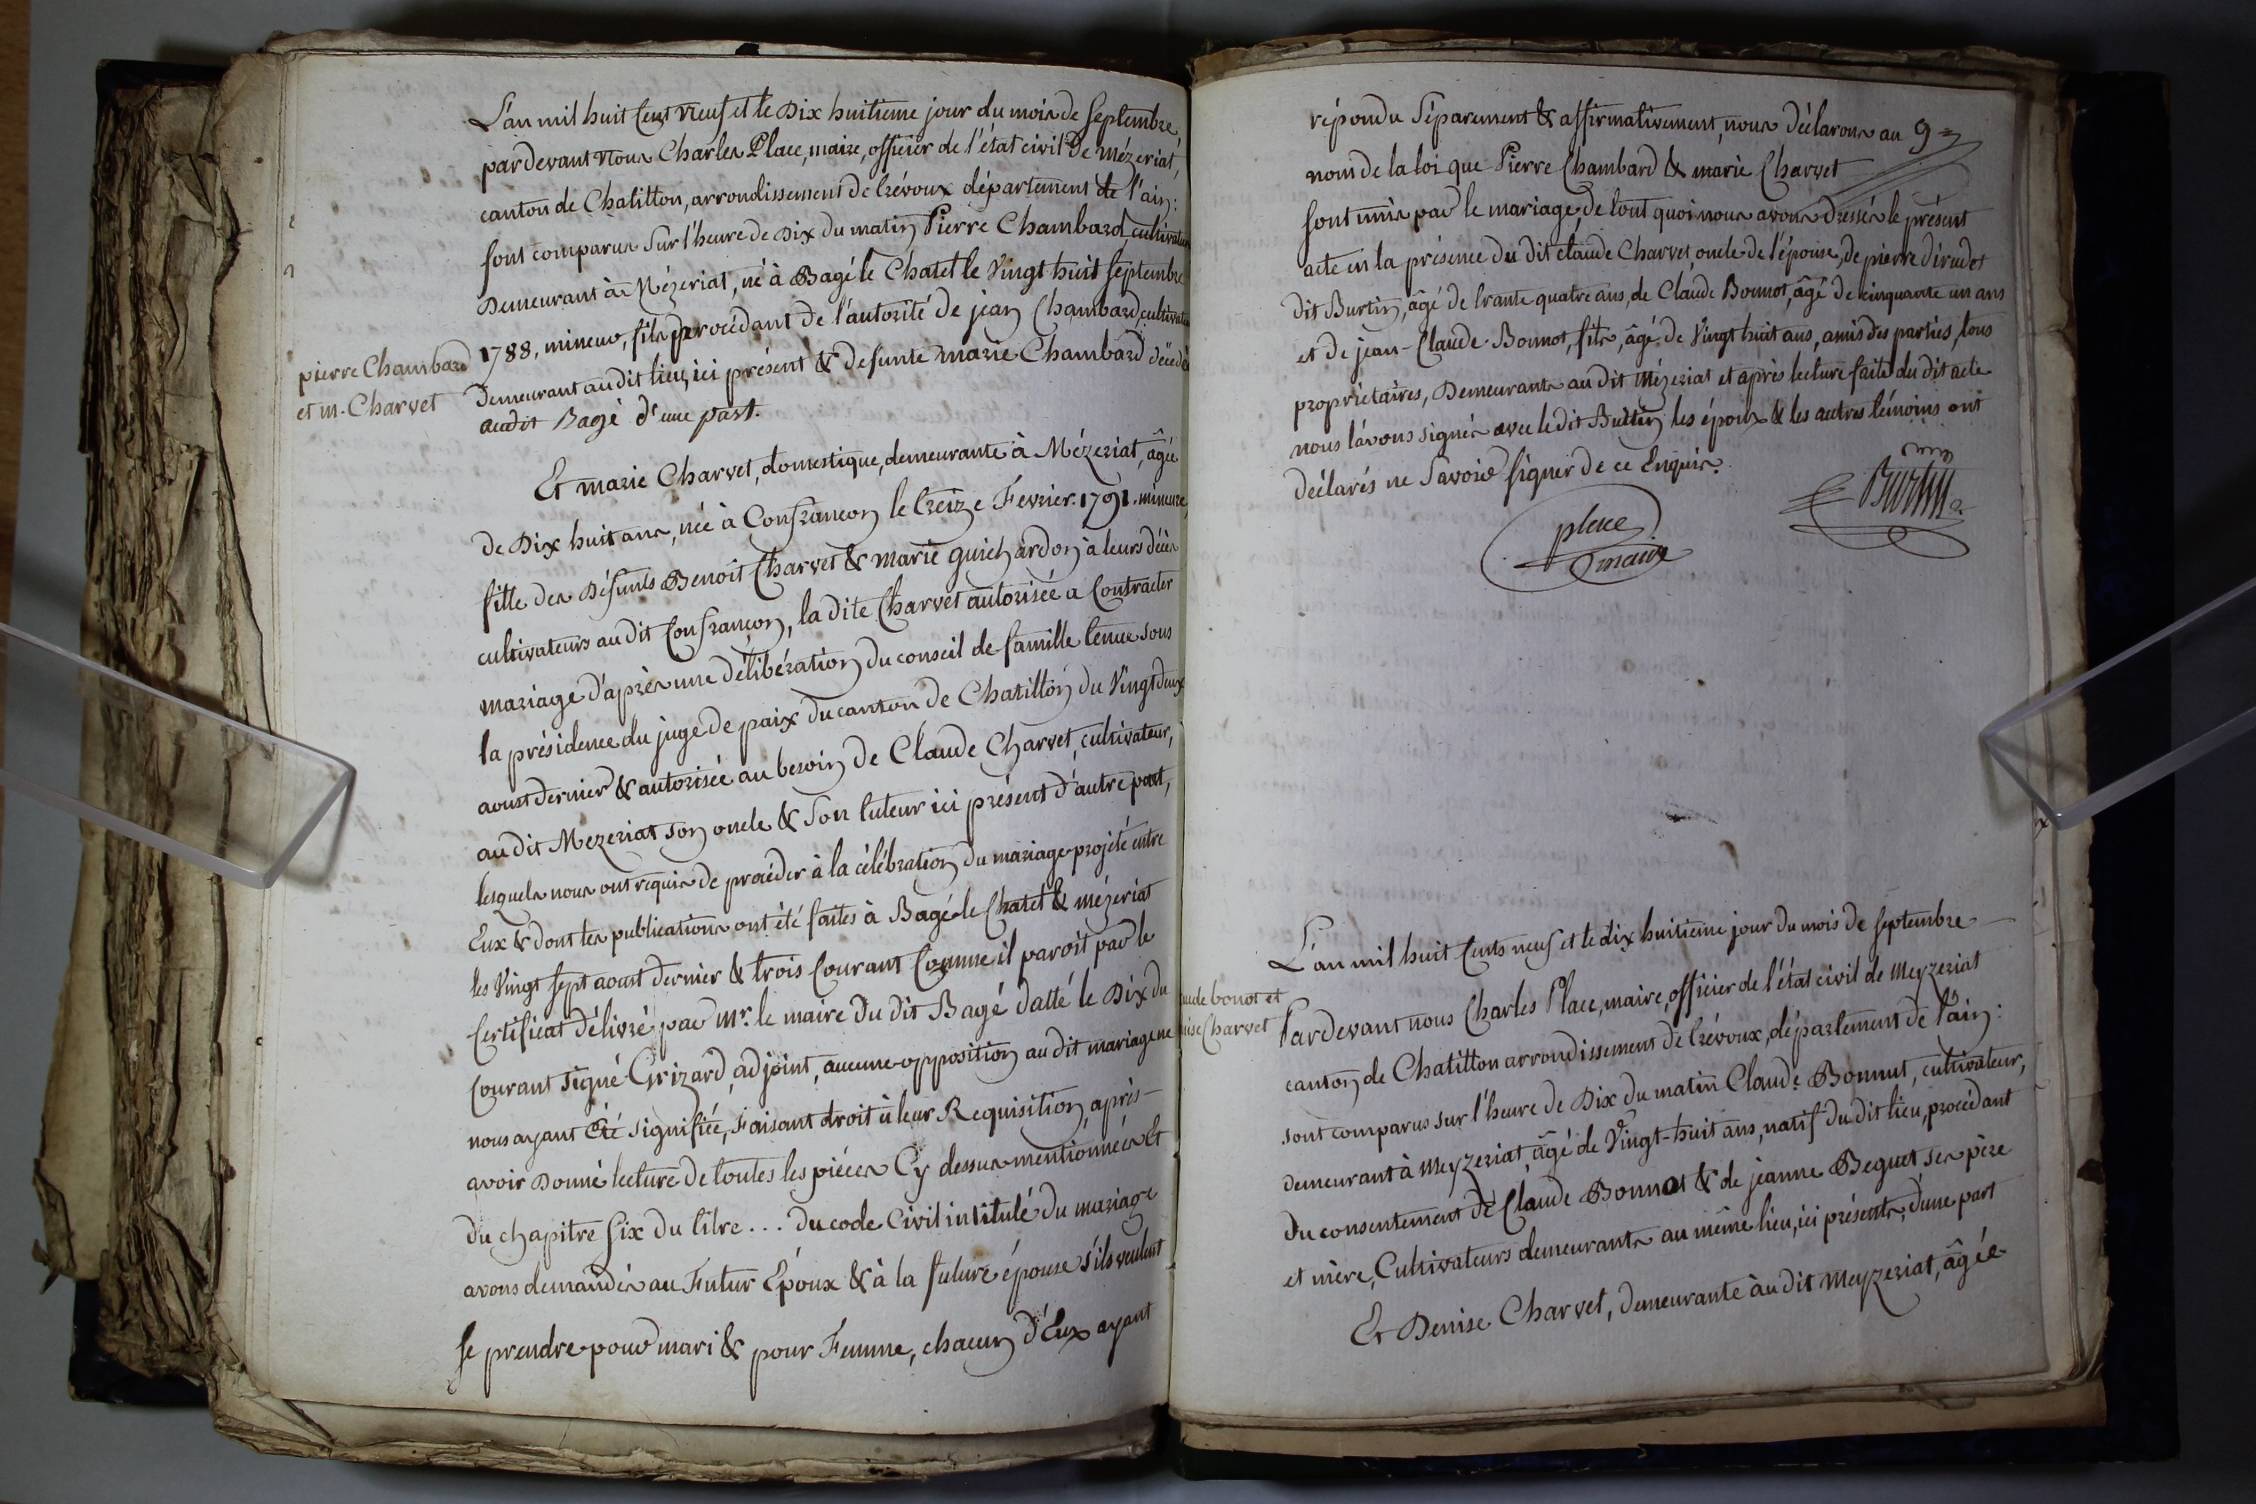 L'an mil huit Cent neuf et le Dix huitieme jour du mois de Septembre,
pardevant Nous Charles Place, maire, officier de l'état civil De Mézeriat,
canton de Chatillon, arrondissement de trévoux département de l'ain:
sont comparus Sur l'heure de Dix du matin Pierre Chambard cultivateur
Demeurant à Mézeriat, né à Bagé le Chatel le Vingt huit Septembre
1788, mineur, fils procédant de l'autorité de jean Chambard, cultivateur
Demeurant au dit lieu, ici présent & defunte marie Chambard décédée
audit Bagé d'une part.
pierre Chambard
et m. Charvet
Et marie Charvet, domestique, demeurante à Mézeriat, âgée
de Dix huit ans, née à Confrançon le treize Fevrier 1791. mineure,
fille des Défunts Benoit Charvet & marie guichardon à leurs décès
cultivateurs au dit Confrançon, la dite Charvet autorisée a Contracter
mariage d'après une délibération du conseil de famille tenue sous
la présidence du juge de paix du canton de Chatillon du Vingt deux
aoust dernier & autorisée au besoin de Claude Charvet, cultivateur,
au dit Mezeriat son oncle & Son tuteur ici présent d'autre part,
lesquels nous ont requis de procéder à la célébration du mariage projeté entre
Eux & dont les publications ont été faites à Bagé le Chatel & mézériat
les Vingt sept aoust dernier & trois Courant Comme il paroit par le
Certificat délivré par Mr. le maire Du dit Bagé datté le Dix du
Courant Signé Grizard, adjoint, aucune opposition au dit mariage ne
nous ayant Eté signifiée, Faisant droit à leur Requisition après
avoir Donné lecture de toutes les pièces Cy dessus mentionnées Et
du chapitre Six du titre ... du code Civil intitulé du mariage
avons demandés au Futur Epoux & à la future épouse s'ils veulent
se prendre pour mari & pour Femme, chacun d'Eux ayant
répondu Séparement & affirmativement, nous déclarons au 9
nom de la loi que Pierre Chambard & marie Charvet
sont unis par le mariage, de tout quoi nous avons Dressés le présent
acte en la présence du dit claude Charvet oncle de l'épouse, de pierre
dit Burtin, âgé de trante quatre ans, de Claude Bonnot, âgé de cinquante un ans
et de jean-Claude Bonnot, fils, âgé de Vingt huit ans, amis des parties, tous
propriétaires, Demeurants au dit Mézeriat et après lecture faite du dit acte
nous l'avons signés avec le dit Burtin les époux & les autres témoins ont
déclarés ne Savoir Signer de ce Enquis.
place
maire
Burtin
L'an mil huit Cents neuf et le dix huitieme jour du mois de septembre
Pardevant nous Charles Place, maire, officier de l'état civil de Meyzeriat
ude bonot et
ise Charvet
canton de Chatillon arrondissement de trévoux, département de l'ain:
sont comparus sur l'heure de Dix du matin Claude Bonnut, cultivateur,
demeurant à Meyzeriat, âgé de Vingt-huit ans, natif du dit lieu, procédant
du consentement de Claude Bonnot & de jeanne Beguet, ses père
et mère, Cultivateurs demeurants au même lieu, ici présents, d'une part
Et Denise Charvet, demeurante àu dit Meyzeriat, âgée